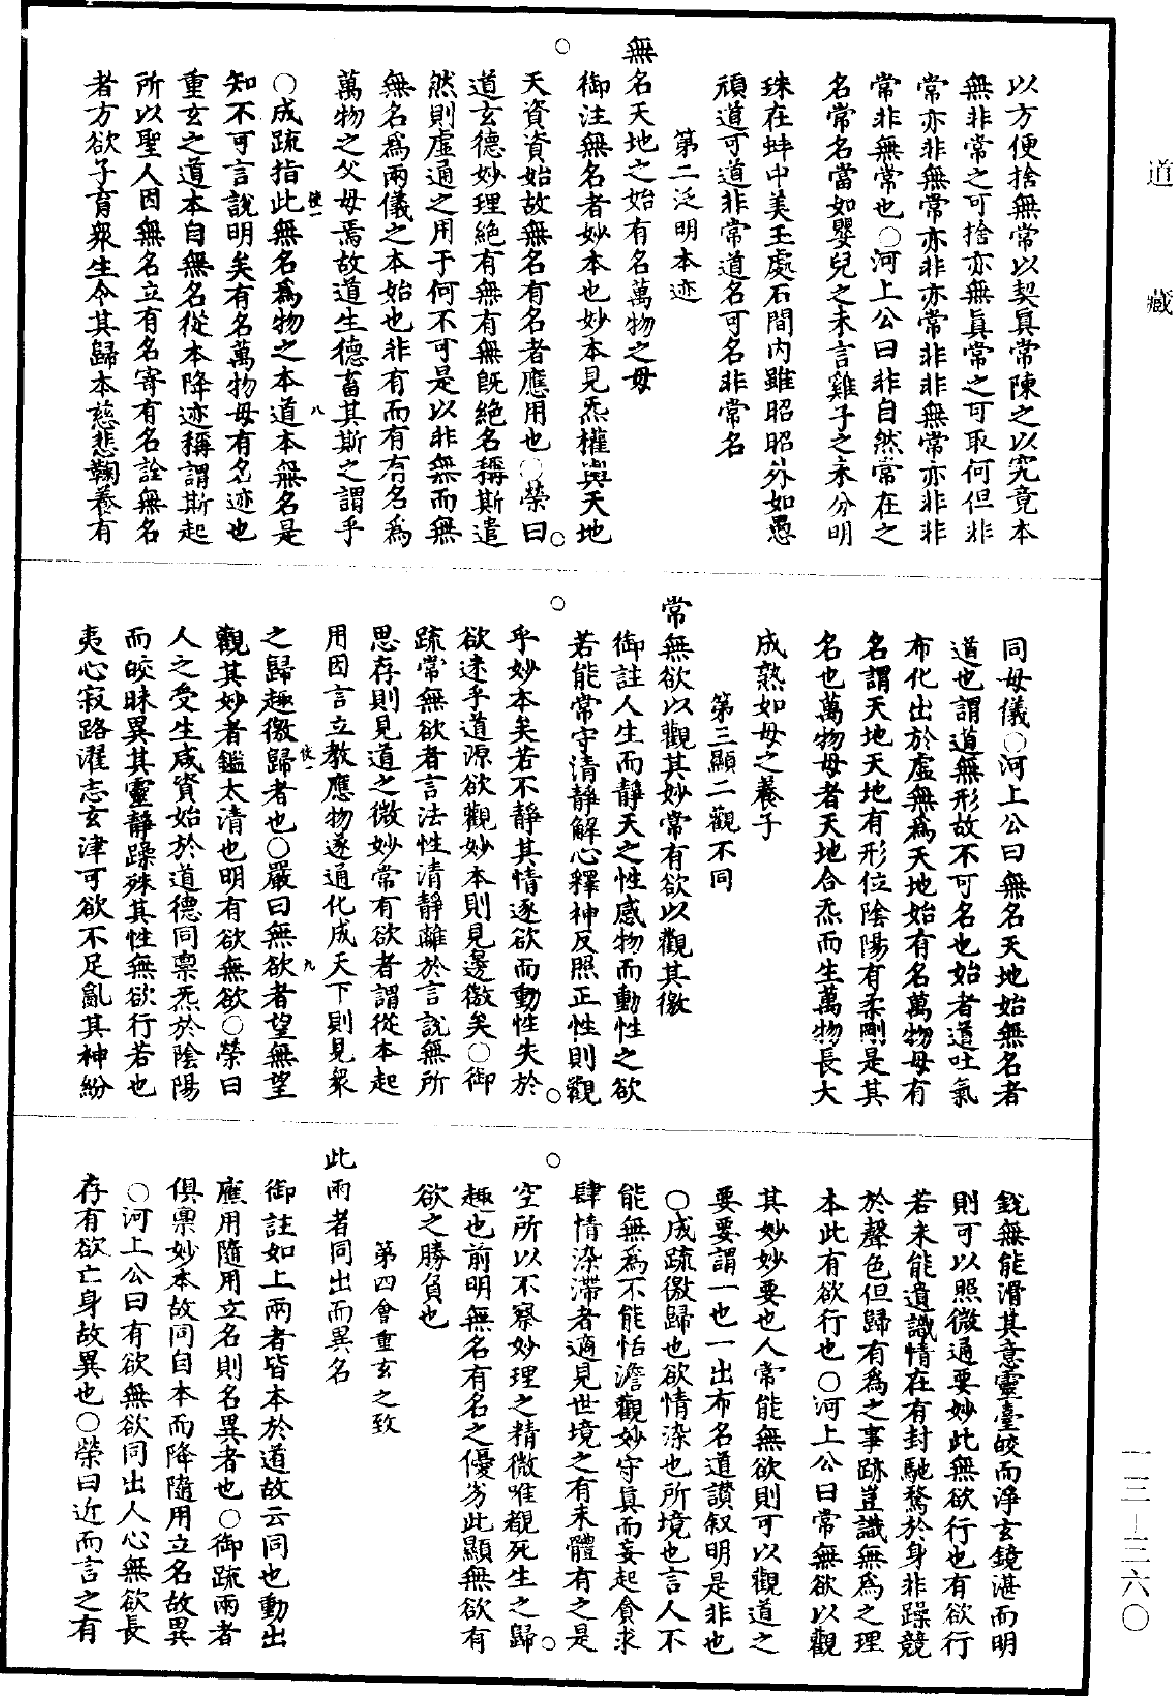 道藏
以方便捨無常以契真常陳之以究竟本
無非常之可捨亦無真常之可取何但非
常亦非無常亦非亦常非非無常亦非非
常非無常也○河上公曰非自然常在之
名常名當如嬰兒之未言雞子之未分明
珠在蚌中美玉處石間內雖昭昭外如愚
頑道可道非常道名可名非常名
第二泛明本迹
無名天地之始有名萬物之母
御注無名者妙本也妙本見炁權輿天地
天資資始故無名有名者應用也○榮曰
道玄德妙理絕有無有無既絕名稱斯遣
然則虛通之用于何不可是以非無而無
無名為兩儀之本始也非有而有有名為
萬物之父母焉故道生德畜其斯之謂乎
○成疏指此無名為物之本道本無名是
知不可言說明矣有名萬物母有名迹也
重玄之道本自無名從本降迹稱謂斯起
所以聖人因無名立有名寄有名詮無名
者方欲子育眾生令其歸本慈悲鞠養有
同母儀○河上公曰無名天地始無名者
道也謂道無形故不可名也始者道吐氣
布化出於虛無為天地始有名萬物母有
名謂天地天地有形位陰陽有柔剛是其
名也萬物母者天地合炁而生萬物長大
成熟如母之養子
第三顯二觀不同
常無欲以觀其妙常有欲以觀其徼
御註人生而靜天之性感物而動性之欲
若能常守清靜解心釋神反照正性則觀
乎妙本矣若不靜其情逐欲而動性失於
欲迷乎道源欲觀妙本則見邊徼矣○御
疏常無欲者言法性清靜離於言說無所
思存則見道之微妙常有欲者謂從本起
用因言立教應物遂通化成天下則見眾
之歸趣徼歸者也○嚴曰無欲者望無望
觀其妙者鑑太清也明有欲無欲○榮曰
人之受生咸資始於道德同稟炁於陰陽
而皎昧異其靈靜躁殊其性無欲行若也
夷心寂路濯志玄津可欲不足亂其神紛
銳無能滑其意靈臺皎而淨玄鏡湛而明
則可以照微通要妙此無欲行也有欲行
若未能遺識情在有封馳騖於身非躁競
於聲色但歸有為之事跡豈識無為之理
本此有欲行也○河上公曰常無欲以觀
其妙妙要也人常能無欲則可以觀道之
要要謂一也一出布名道讚叙明是非也
○成疏徼歸也欲情染也所境也言人不
能無為不能恬澹觀妙守真而妄起貪求
肆情染滯者適見世境之有未體有之是
空所以不察妙理之精微唯覩死生之歸
趣也前明無名有名之優劣此顯無欲有
欲之勝負也
第四會重玄之致
此兩者同出而異名
御註如上兩者皆本於道故云同也動出
應用隨用立名則名異者也○御疏兩者
俱稟妙本故同自本而降隨用立名故異
○河上公曰有欲無欲同出人心無欲長
存有欲亡身故異也○榮曰近而言之有
一三－三六〇